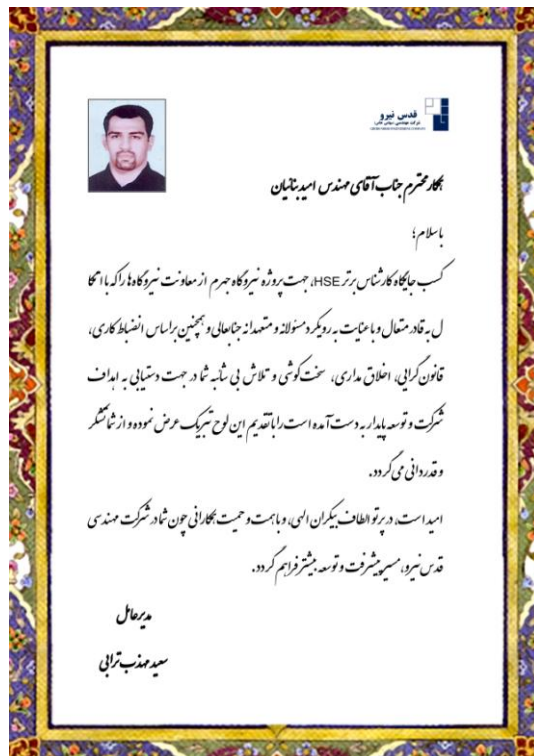 قدس نیرو
همکار محترم جناب آقای مهندس امید بنائیان
باسلام؛
کسب جایگاه کارشناس برتر HSE، جهت پروژه نیروگاه جهرم از معاونت نیروگاه ها را که با اتکا
ل به قادر متعال و با عنایت به رویکرد مسئولانه و متعهدانه جنابعالی و همچنین براساس انضباط کاری،
قانون گرایی، اخلاق مداری، سخت کوشی و تلاش بی شائبه شما در جهت دستیابی به اهداف
شرکت و توسعه پایدار به دست آمده است را با تقدیم این لوح تبریک عرض نموده و از شما تشکر
و قدردانی می گردد.
امید است، در پرتو الطاف بیکران الهی، و با همت و حمیت همکارانی چون شما در شرکت مهندسی
قدس نیرو، مسیر پیشرفت و توسعه بیشتر فراهم گردد.
مدیرعامل
سعید مهذب ترابی